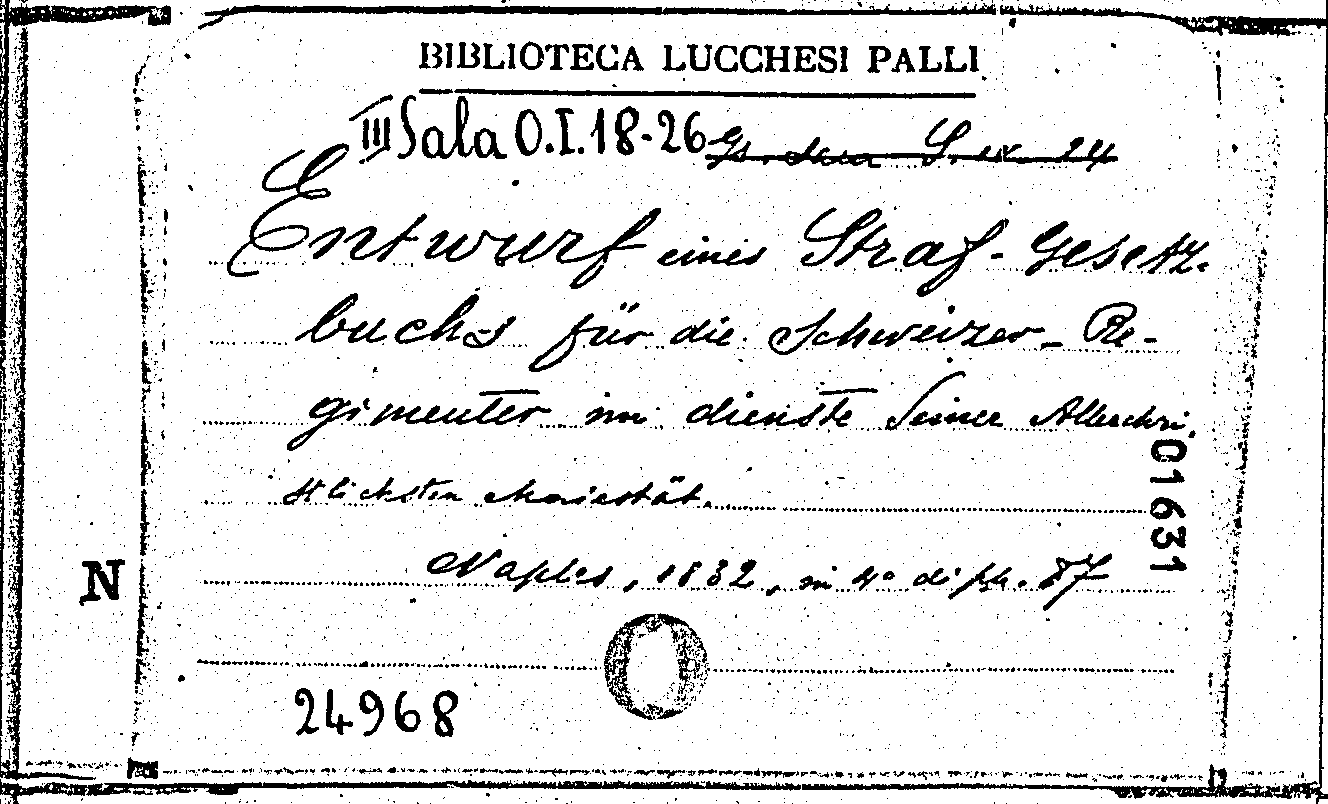 BIBLIOTECA LUCCHESI PALLI
III Sala O.I.18-26
Entwurf eines Straf-Gesetz-
buchs für die Schweizer-Re-
gimenter im dienste Seiner Allerchri-
stlichsten Majestät.
Naples, 1832, in 4° di pp. 87
01631
N
24968